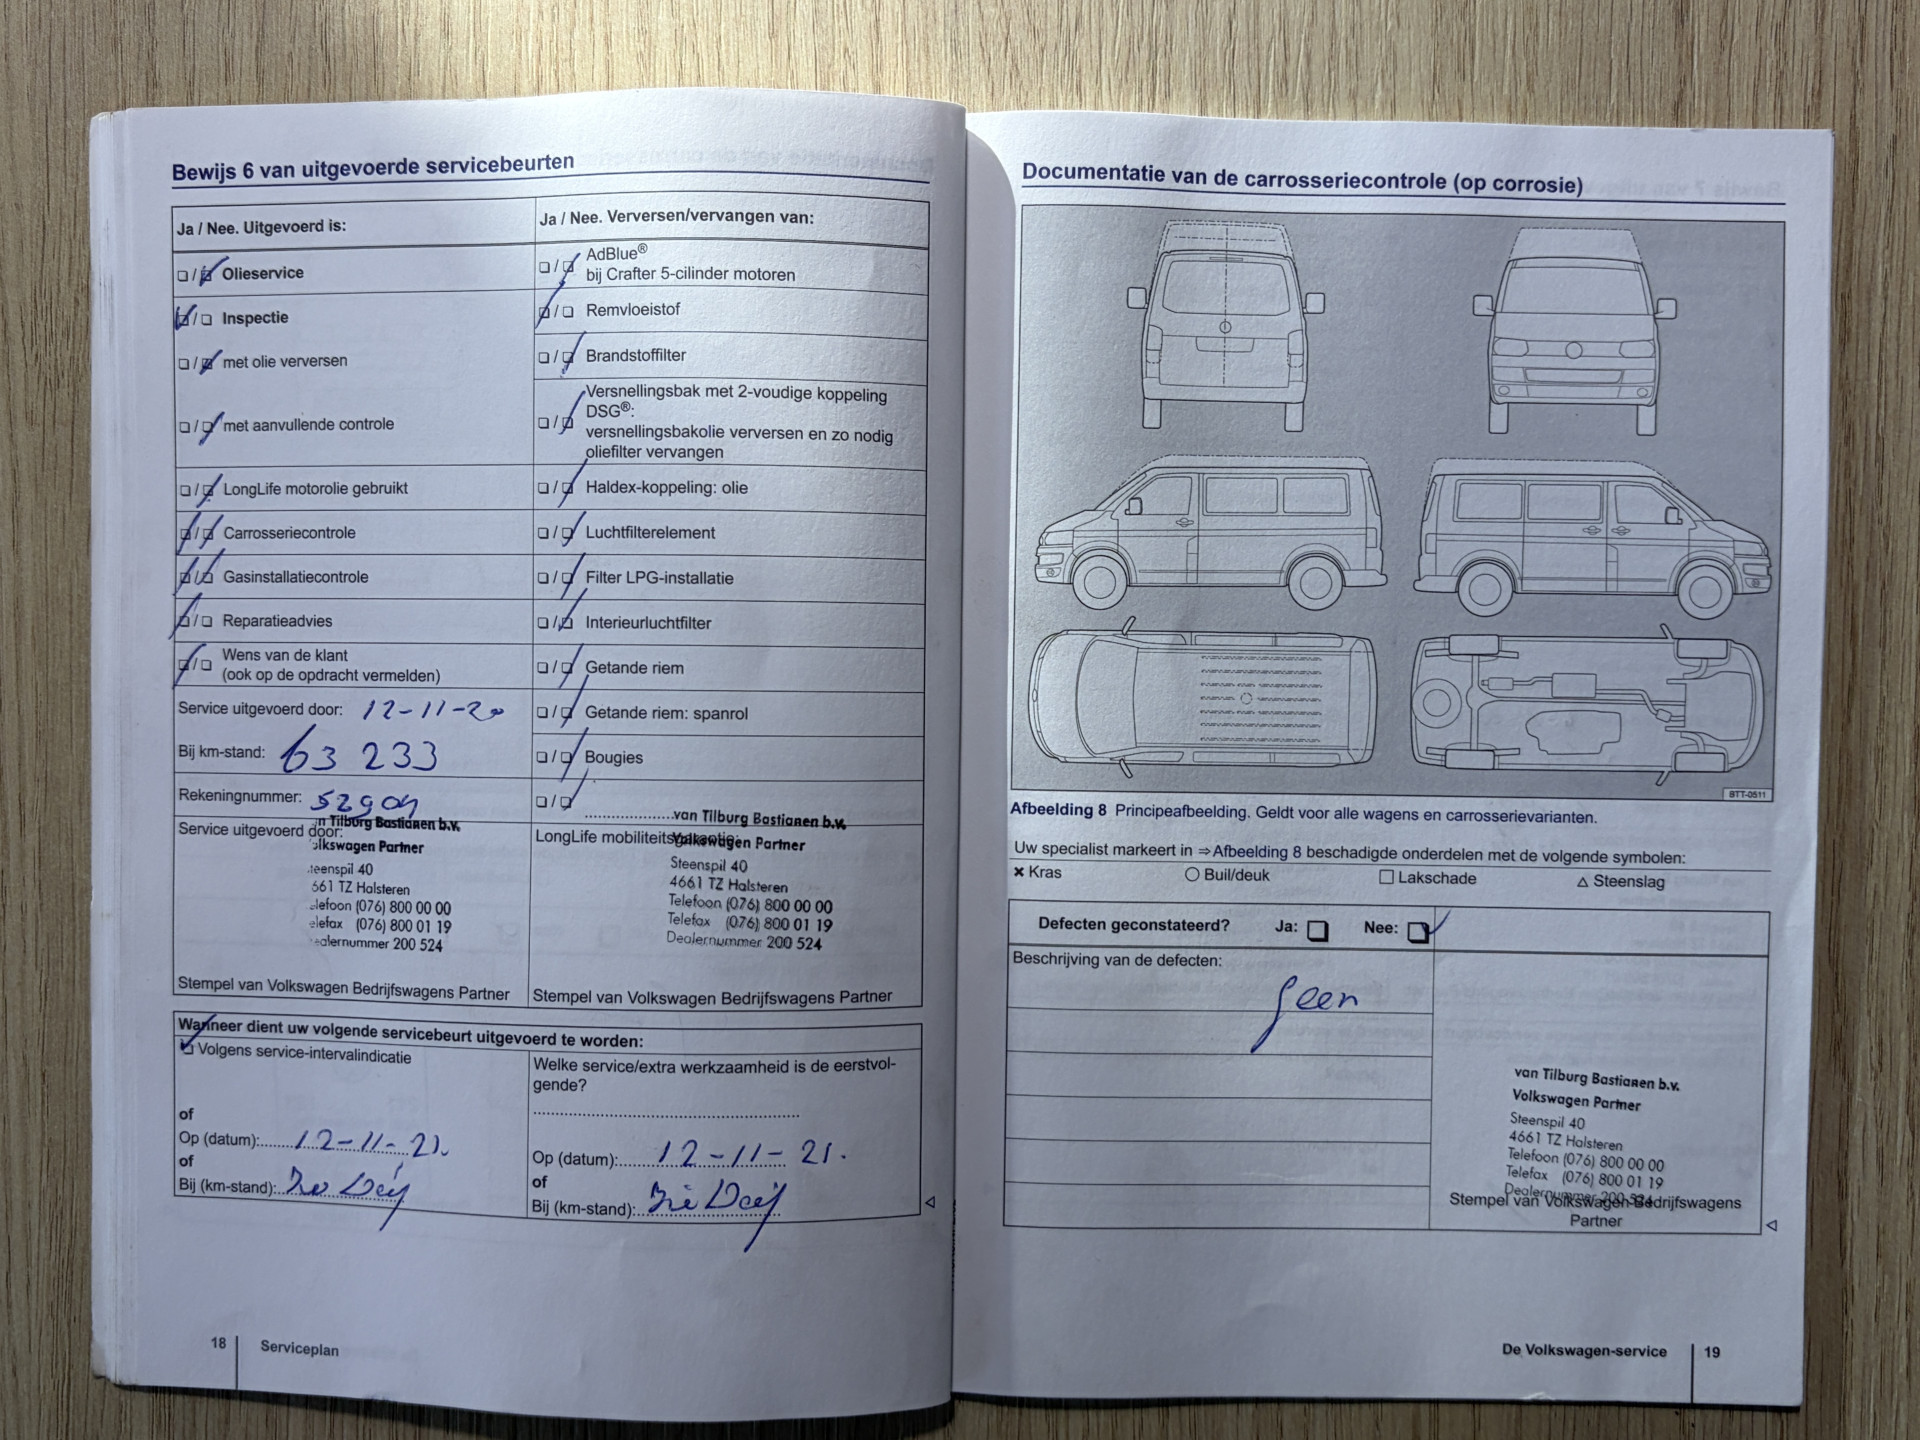 Bewijs 6 van uitgevoerde servicebeurten
Ja / Nee. Uitgevoerd is:
❏ / ❏ Olieservice
❏ / ❏ Inspectie
❏ / ❏ met olie verversen
❏ / ❏ met aanvullende controle
❏ / ❏ LongLife motorolie gebruikt
❏ / ❏ Carrosseriecontrole
❏ / ❏ Gasinstallatiecontrole
❏ / ❏ Reparatieadvies
❏ / ❏ Wens van de klant
(ook op de opdracht vermelden)
Service uitgevoerd door: 12-11-20
Bij km-stand: 63 233
Rekeningnummer:
Service uitgevoerd door:
n Tilburg Bastianen b.v.
olkswagen Partner
teenspil 40
661 TZ Halsteren
elefoon (076) 800 00 00
elefax (076) 800 01 19
ealernummer 200 524
Stempel van Volkswagen Bedrijfswagens Partner
Ja / Nee. Verversen/vervangen van:
❏ / ❏ AdBlue®
bij Crafter 5-cilinder motoren
❏ / ❏ Remvloeistof
❏ / ❏ Brandstoffilter
❏ / ❏ Versnellingsbak met 2-voudige koppeling
DSG®:
versnellingsbakolie verversen en zo nodig
oliefilter vervangen
❏ / ❏ Haldex-koppeling: olie
❏ / ❏ Luchtfilterelement
❏ / ❏ Filter LPG-installatie
❏ / ❏ Interieurluchtfilter
❏ / ❏ Getande riem
❏ / ❏ Getande riem: spanrol
❏ / ❏ Bougies
❏ / ❏
LongLife mobiliteitsgarantie:
van Tilburg Bastianen b.v.
Volkswagen Partner
Steenspil 40
4661 TZ Halsteren
Telefoon (076) 800 00 00
Telefax (076) 800 01 19
Dealernummer 200 524
Stempel van Volkswagen Bedrijfswagens Partner
Wanneer dient uw volgende servicebeurt uitgevoerd te worden:
❏ Volgens service-intervalindicatie
of
Op (datum): 12-11-21.
of
Bij (km-stand):
Welke service/extra werkzaamheid is de eerstvol-
gende?
Op (datum): 12-11-21.
of
Bij (km-stand):
18 Serviceplan
Documentatie van de carrosseriecontrole (op corrosie)
BTT-0511
Afbeelding 8 Principeafbeelding. Geldt voor alle wagens en carrosserievarianten.
Uw specialist markeert in ⇒ Afbeelding 8 beschadigde onderdelen met de volgende symbolen:
✖ Kras ○ Buil/deuk □ Lakschade △ Steenslag
Defecten geconstateerd? Ja: ❏ Nee: ❏
Beschrijving van de defecten:
geen
van Tilburg Bastianen b.v.
Volkswagen Partner
Steenspil 40
4661 TZ Halsteren
Telefoon (076) 800 00 00
Telefax (076) 800 01 19
Dealernummer 200 524
Stempel van Volkswagen Bedrijfswagens
Partner
De Volkswagen-service 19